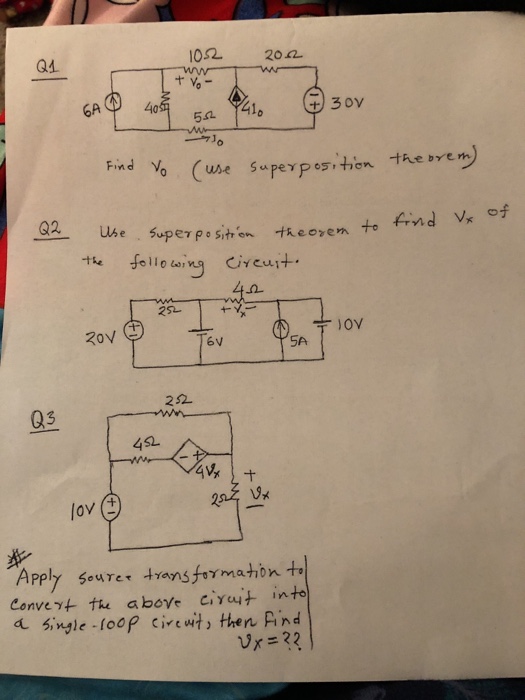 Q1
10Ω 20Ω
+ Vo -
6A 40Ω 4Io - + 30V
5Ω
Io
Find Vo (use superposition theorem)
Q2 Use superposition theorem to find Vx of
the following circuit.
4Ω
2Ω + Vx -
20V + - 6V 5A 10V
Q3
2Ω
4Ω - +
4Vx +
10V + - 2Ω Vx
-
Apply source transformation to
convert the above ciruit into
a single-loop circuit, then find
Vx = ??